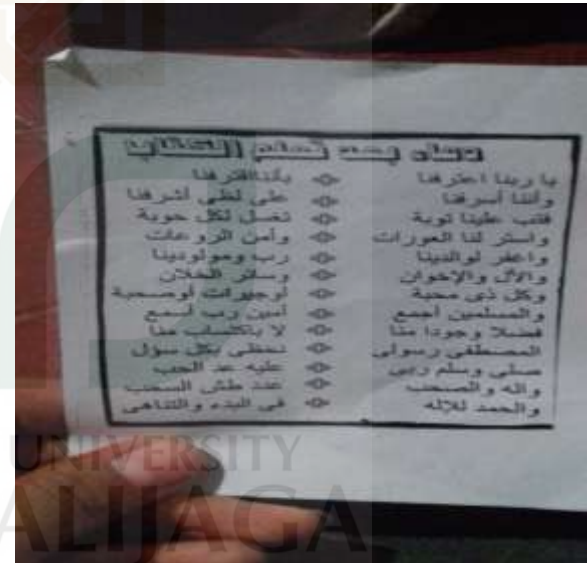 دعاء بعد تعلم الكتاب
يا ربنا اعترفنا بأننا اقترفنا
وأننا أسرفنا على لظى أشرفنا
فتب علينا توبة تغسل لكل حوبة
واستر لنا العورات وآمن الروعات
واغفر لوالدينا رب ومولودينا
والآل والإخوان وسائر الخلان
وكل ذي محبة أو جيرة أو صحبة
والمسلمين أجمع آمين رب اسمع
فضلا وجودا منا لا باكتساب منا
المصطفى رسولي نحظى بكل سؤل
صلى وسلم ربي عليه عد الحب
وآله والصحب عدد طش السحب
والحمد للإله في البدء والتناهي
UNIVERSITY
ALIJAGA